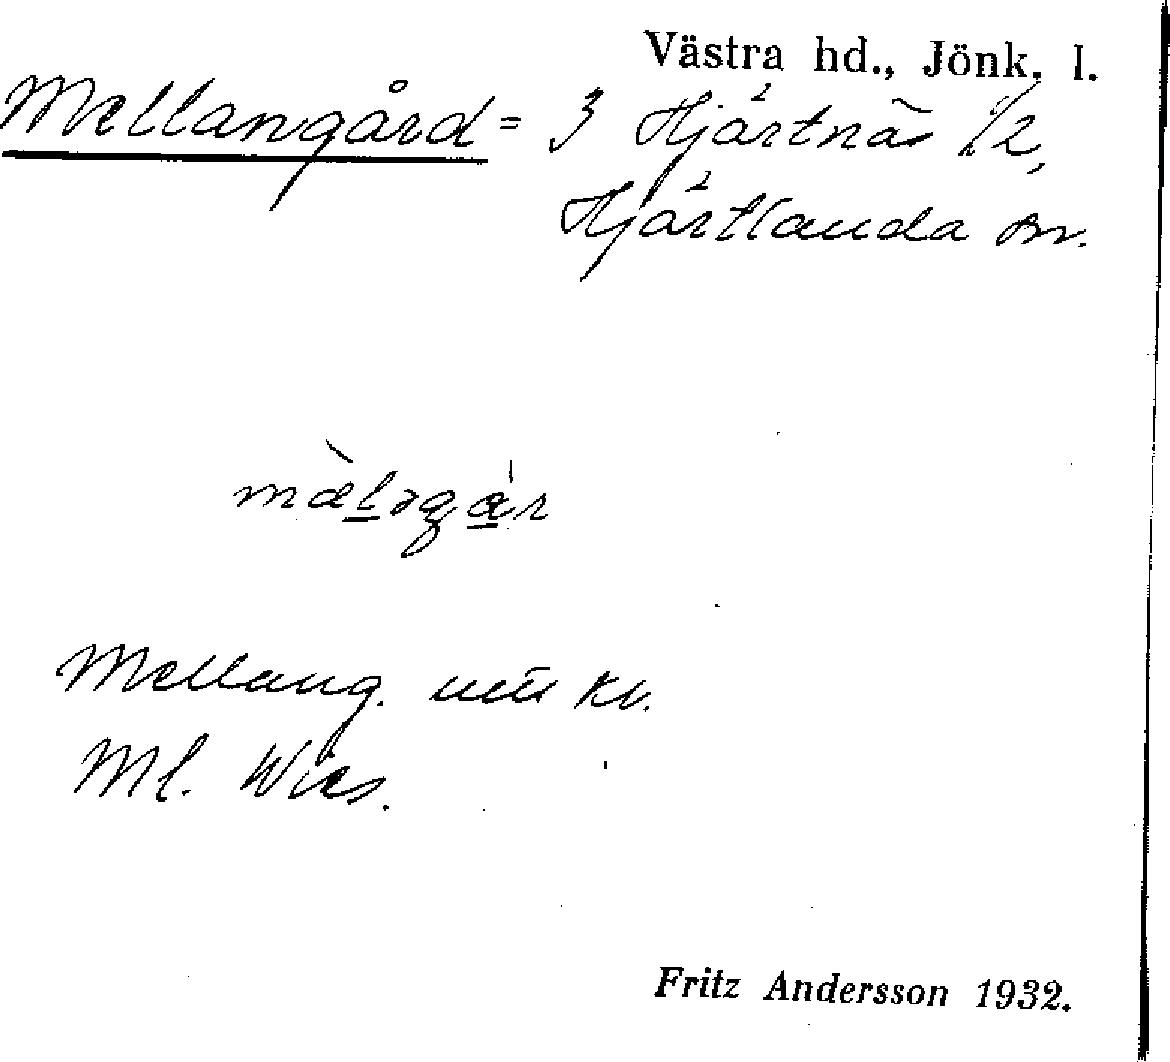 Västra hd., Jönk. l.
Mellangård = 3 Hjärtnäs 1/2,
Hjärtlanda sn.
mæ̀l̲əgɑ̲̀r
Mellang. kv.
Ml. Wies.
Fritz Andersson 1932.